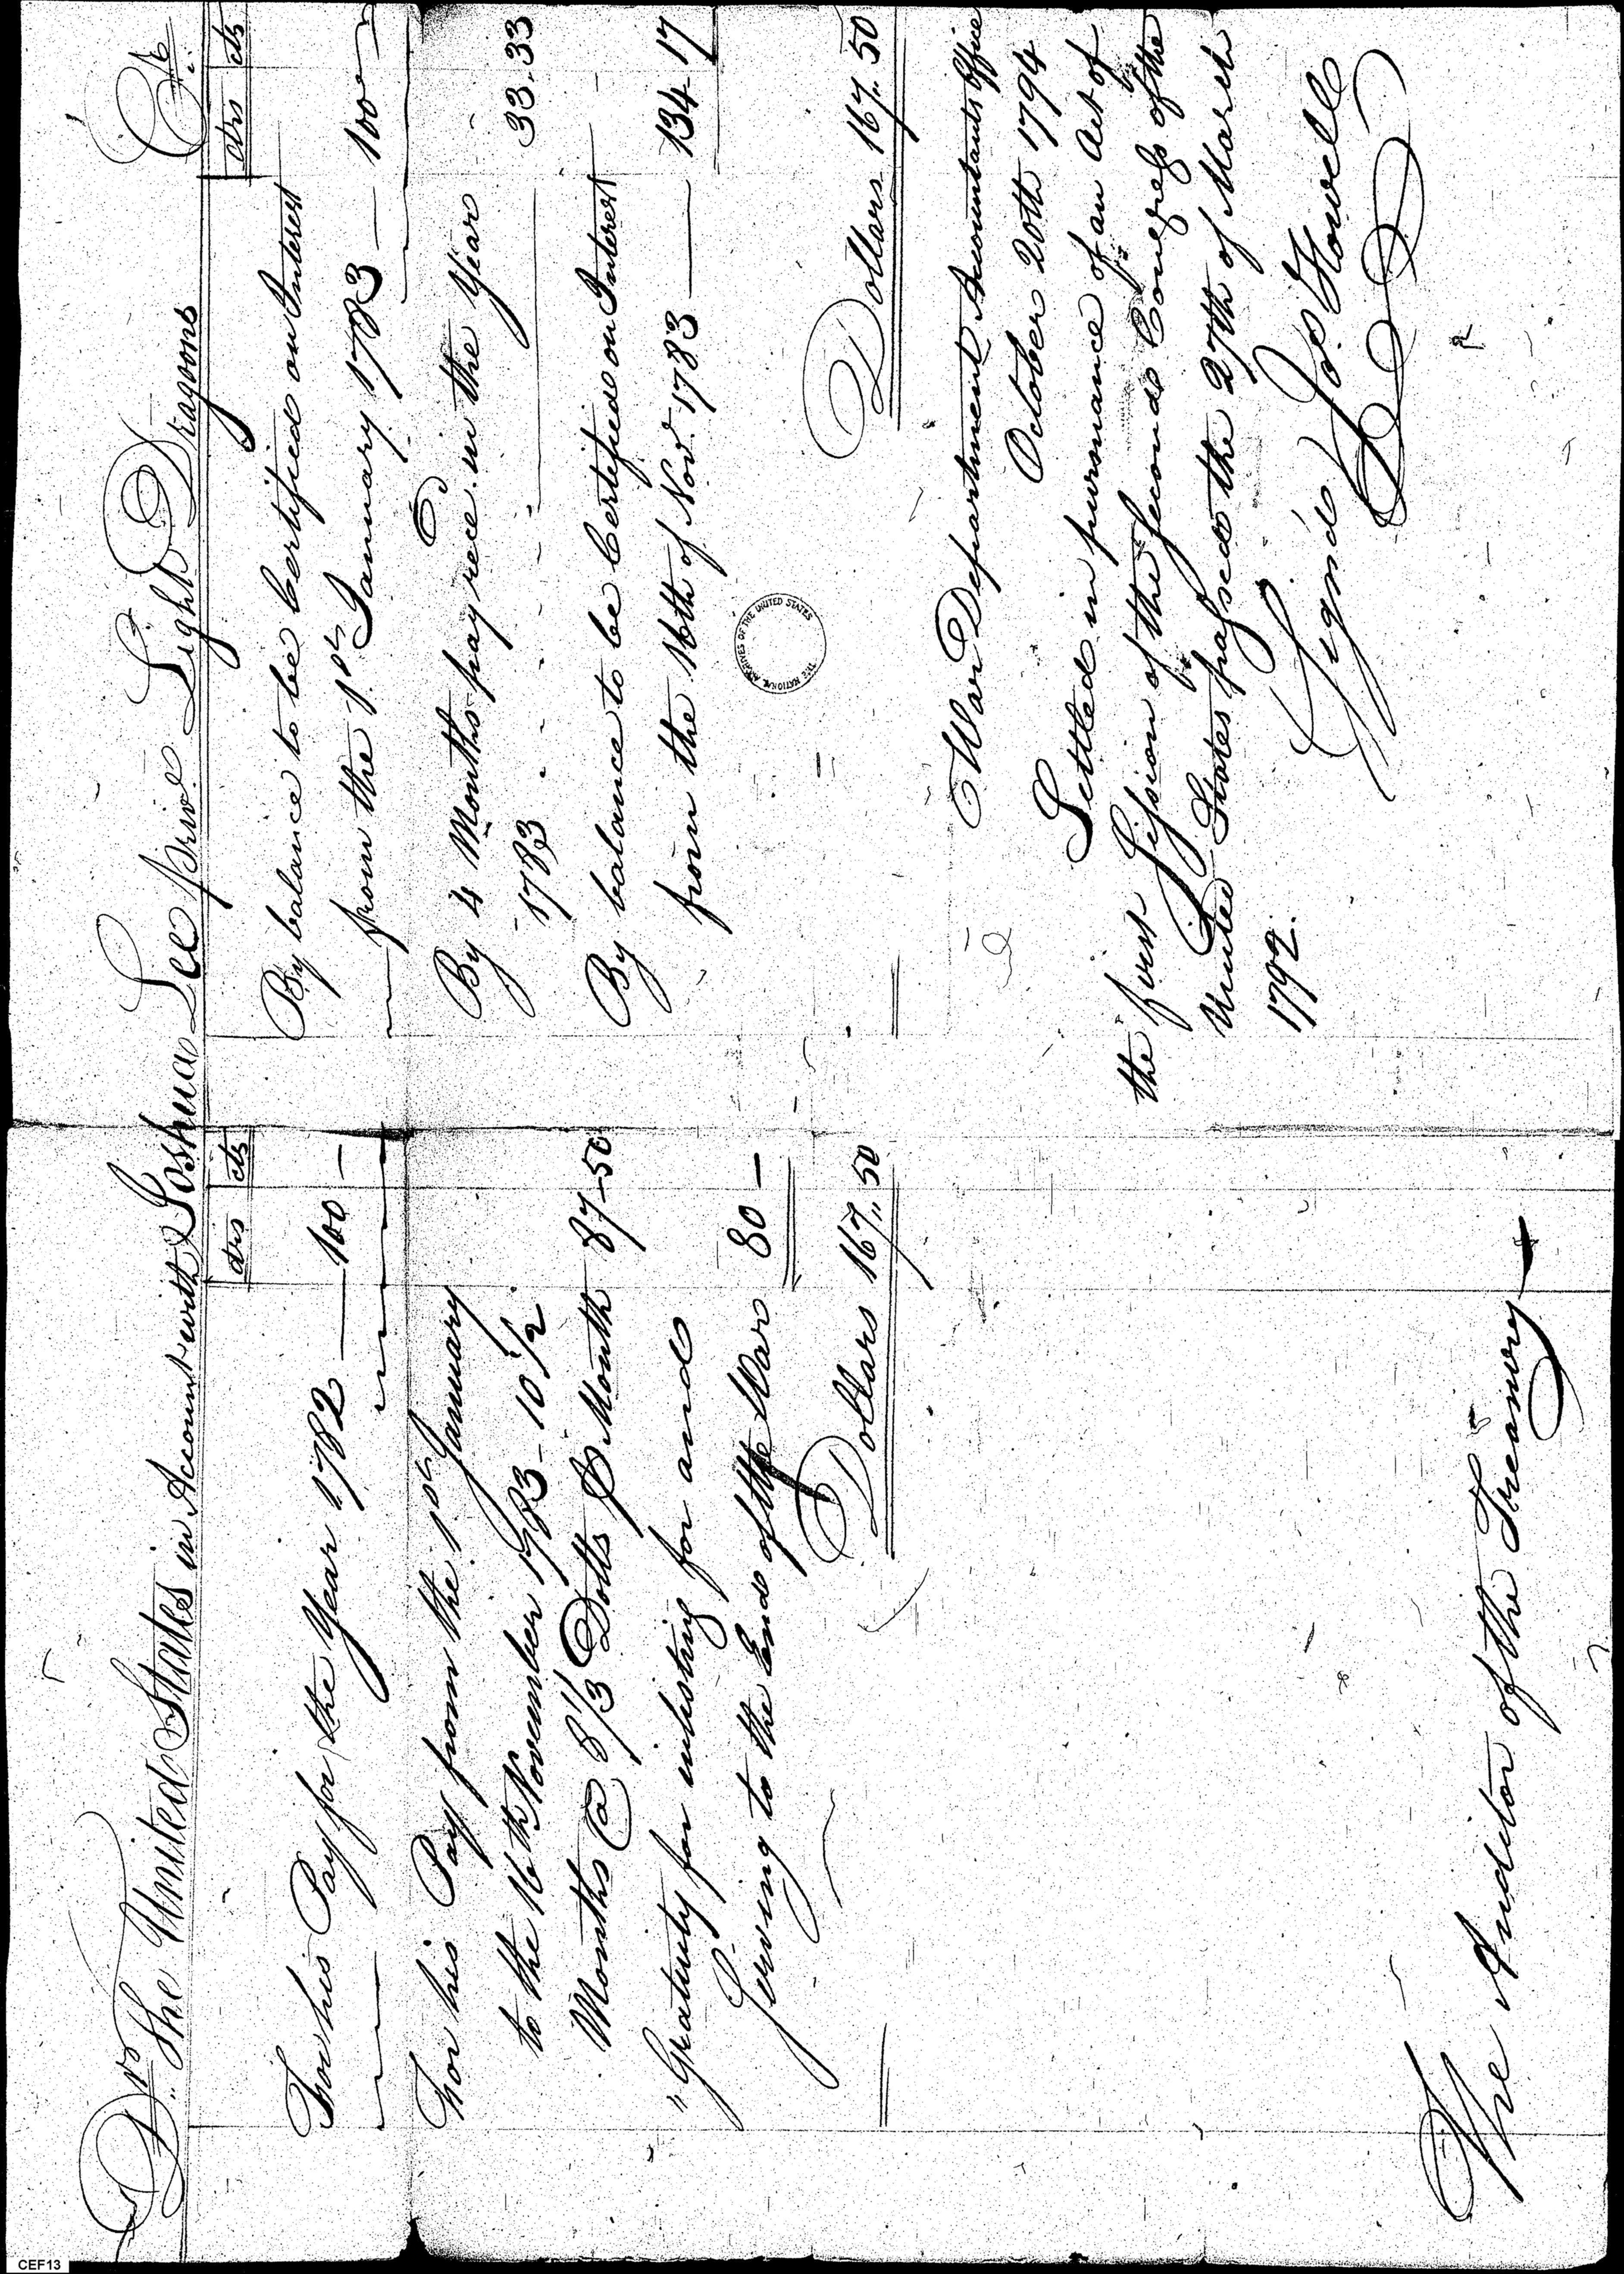 Dr. The United States in Account with Joshua Lee priv. Light Dragoons Cr.
drs cts
For his Pay for the Year 1782 — 100 —
For his Pay from the 1st January
to the 16th November 1783 - 10 1/2
Months @ 8 1/3 Dolls ⅌ Month 87-50
" Gratuity for inlisting for and
serving to the End of the War 80 —
Dollars 167,,50
drs cts
By balance to be Certified on Interest
from the 1st January 1783 — 100 —
By 4 Months pay rece.d in the Year
1783 - - - - - - 33.33
By balance to be Certified on Interest
from the 16th of Novr. 1783 — 134-17
Dollars 167..50
THE NATIONAL ARCHIVES OF THE UNITED STATES
War Department Accountants Office
October 20th 1794
Settled in pursuance of an Act of
the first Session of the second Congress of the
United States passed the 27th of March
1792.
Sign'd Jos. Howell
The Auditor of the Treasury
CEF13